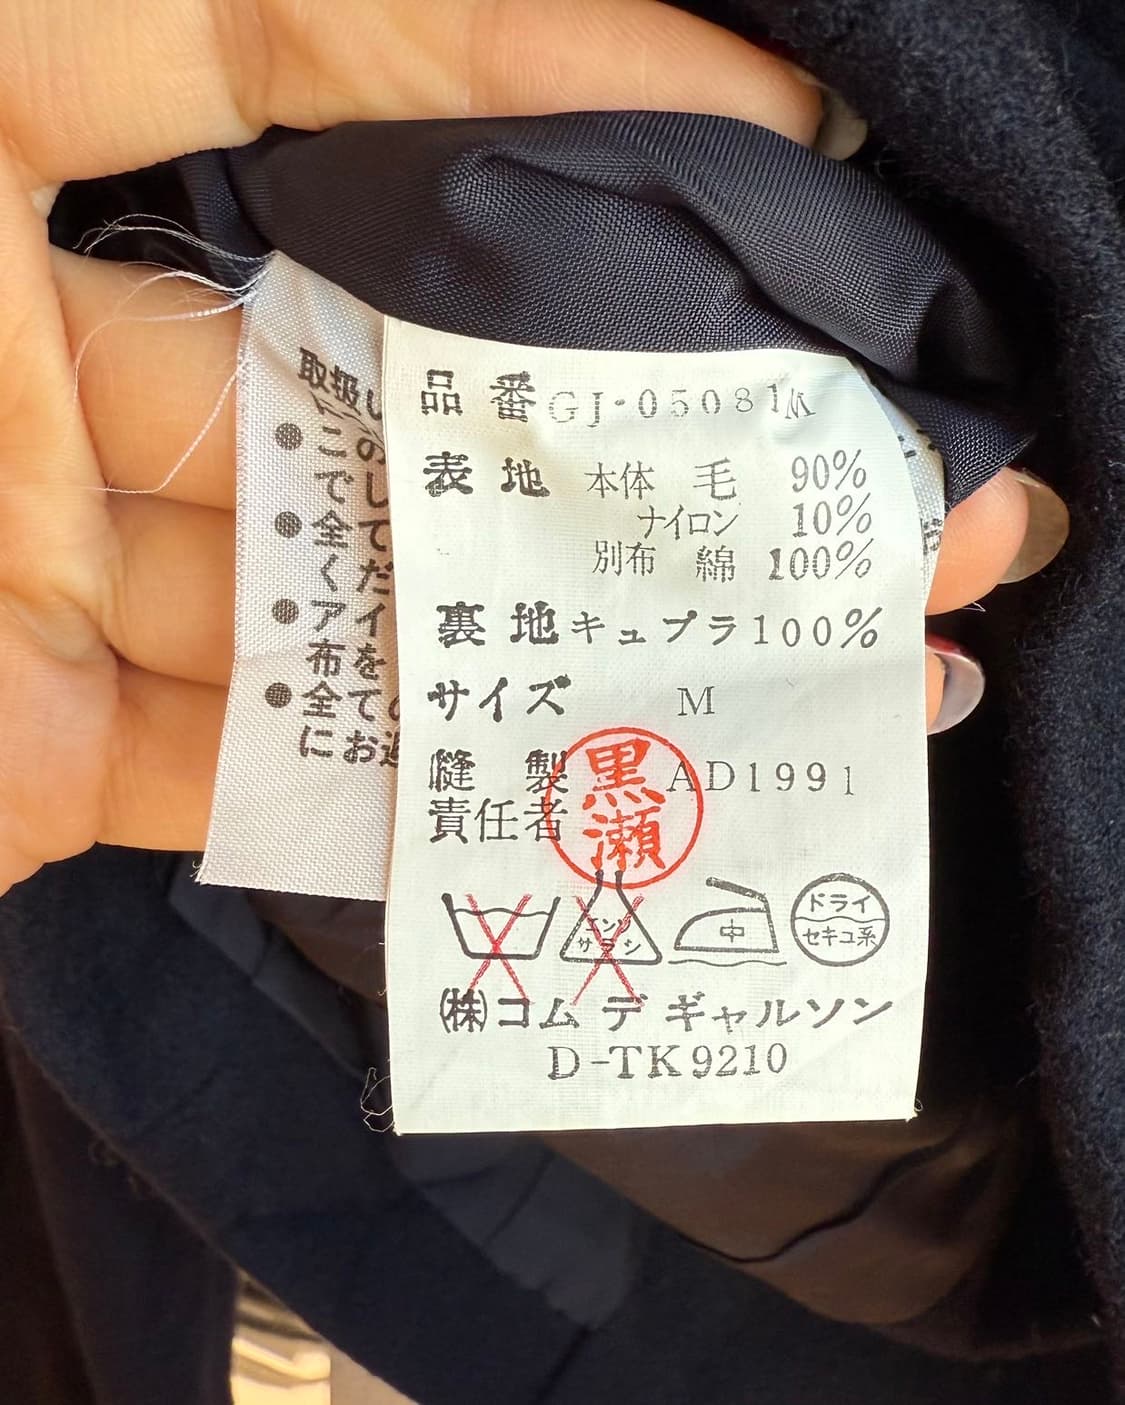 品番 GJ-05081M
表地 本体 毛 90%
ナイロン 10%
別布 綿 100%
裏地 キュプラ 100%
サイズ M
縫製
責任者
黒瀬
AD1991
エンソ
サラシ
中
ドライ
セキユ系
㈱コム デ ギャルソン
D-TK9210
取扱い
●この
でし
●全て
くだ
●アイ
布を
●全ての
にお